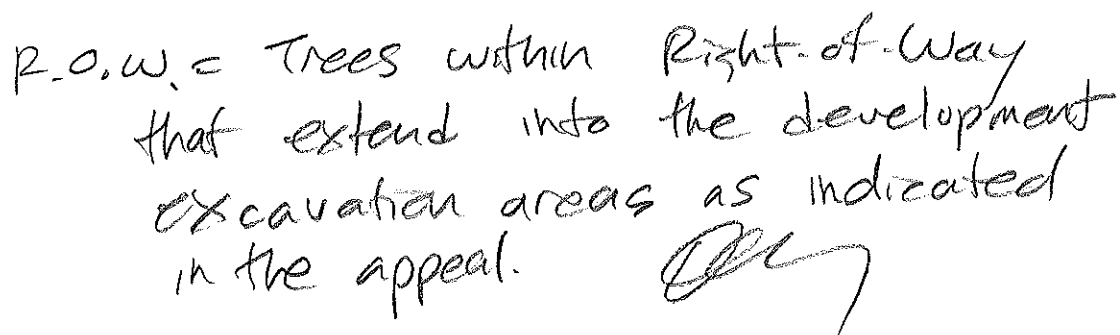 R.O.W. = Trees within Right-of-Way
that extend into the development
excavation areas as indicated
in the appeal.